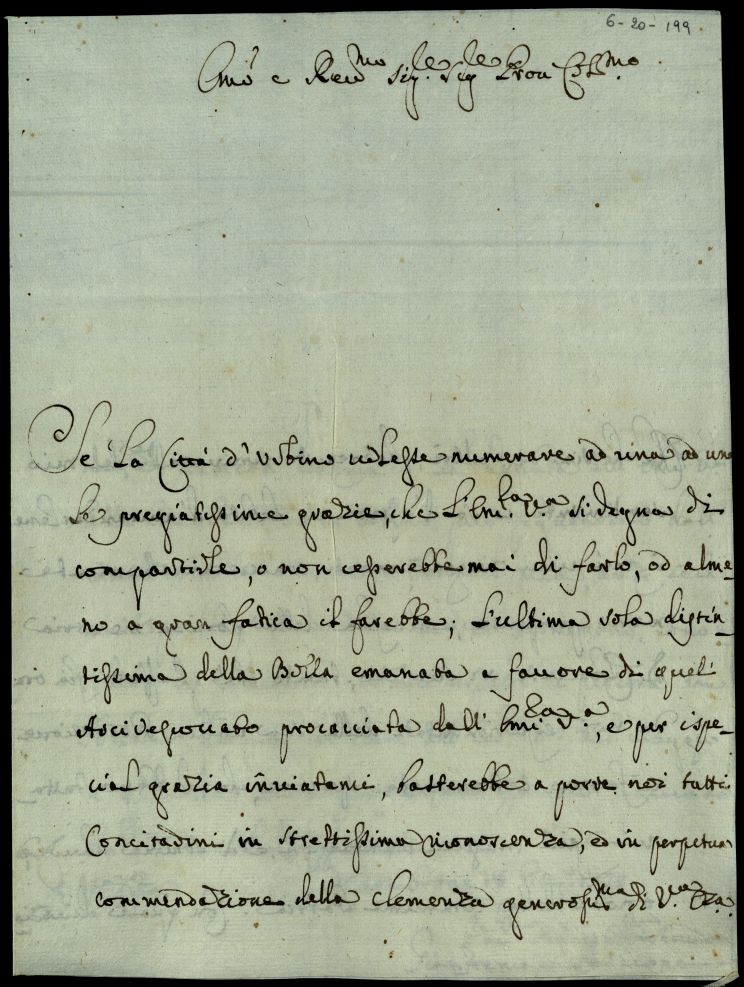 6-20-199
Emo e Revmo Sigle Sig le Pron Colmo.
Se La Città d'Urbino volesse numerare ad una ad una
le pregiatissime grazie, che L'Emza V.a si degna di
compartirle, o non cesserebbe mai di farlo, od alme-
no a gran fatica il farebbe; L'ultima sola distin-
tissima della Bolla emanata a favore di quel'
Arcivescovato procacciata dall' Emza V.a, e per ispe-
cial grazia inviatami, basterebbe a porre noi tutti
Concitadini in strettissima riconoscenza, ed in perpetua
commendazione della clemenza generosissma di V.ra Eza.